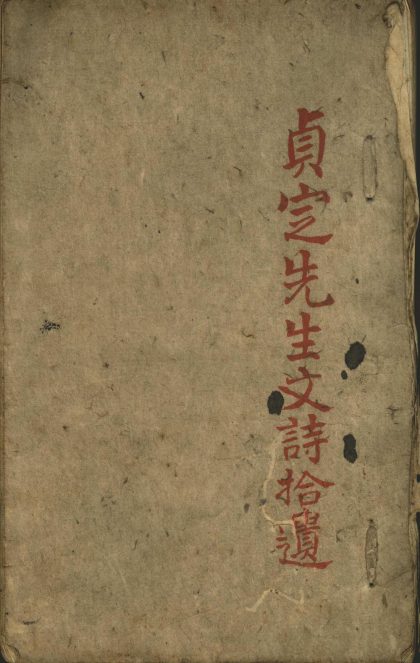 貞定先生文詩拾遺